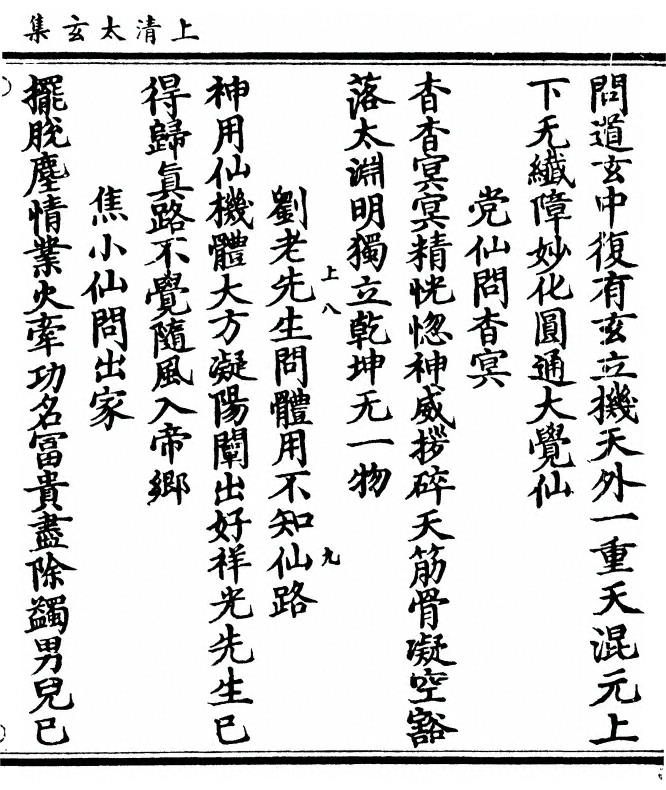 上清太玄集
問道玄中復有玄立機天外一重天混元上
下无纖障妙化圓通大覺仙
党仙問杳冥
杳杳冥冥精恍惚神威拶碎天筋骨凝空豁
落太淵明獨立乾坤无一物
上八
劉老先生問體用不知仙路
九
神用仙機體大方凝陽闡出好祥光先生已
得歸真路不覺隨風入帝鄉
焦小仙問出家
擺脫塵情業火牽功名富貴盡除蠲男兒已